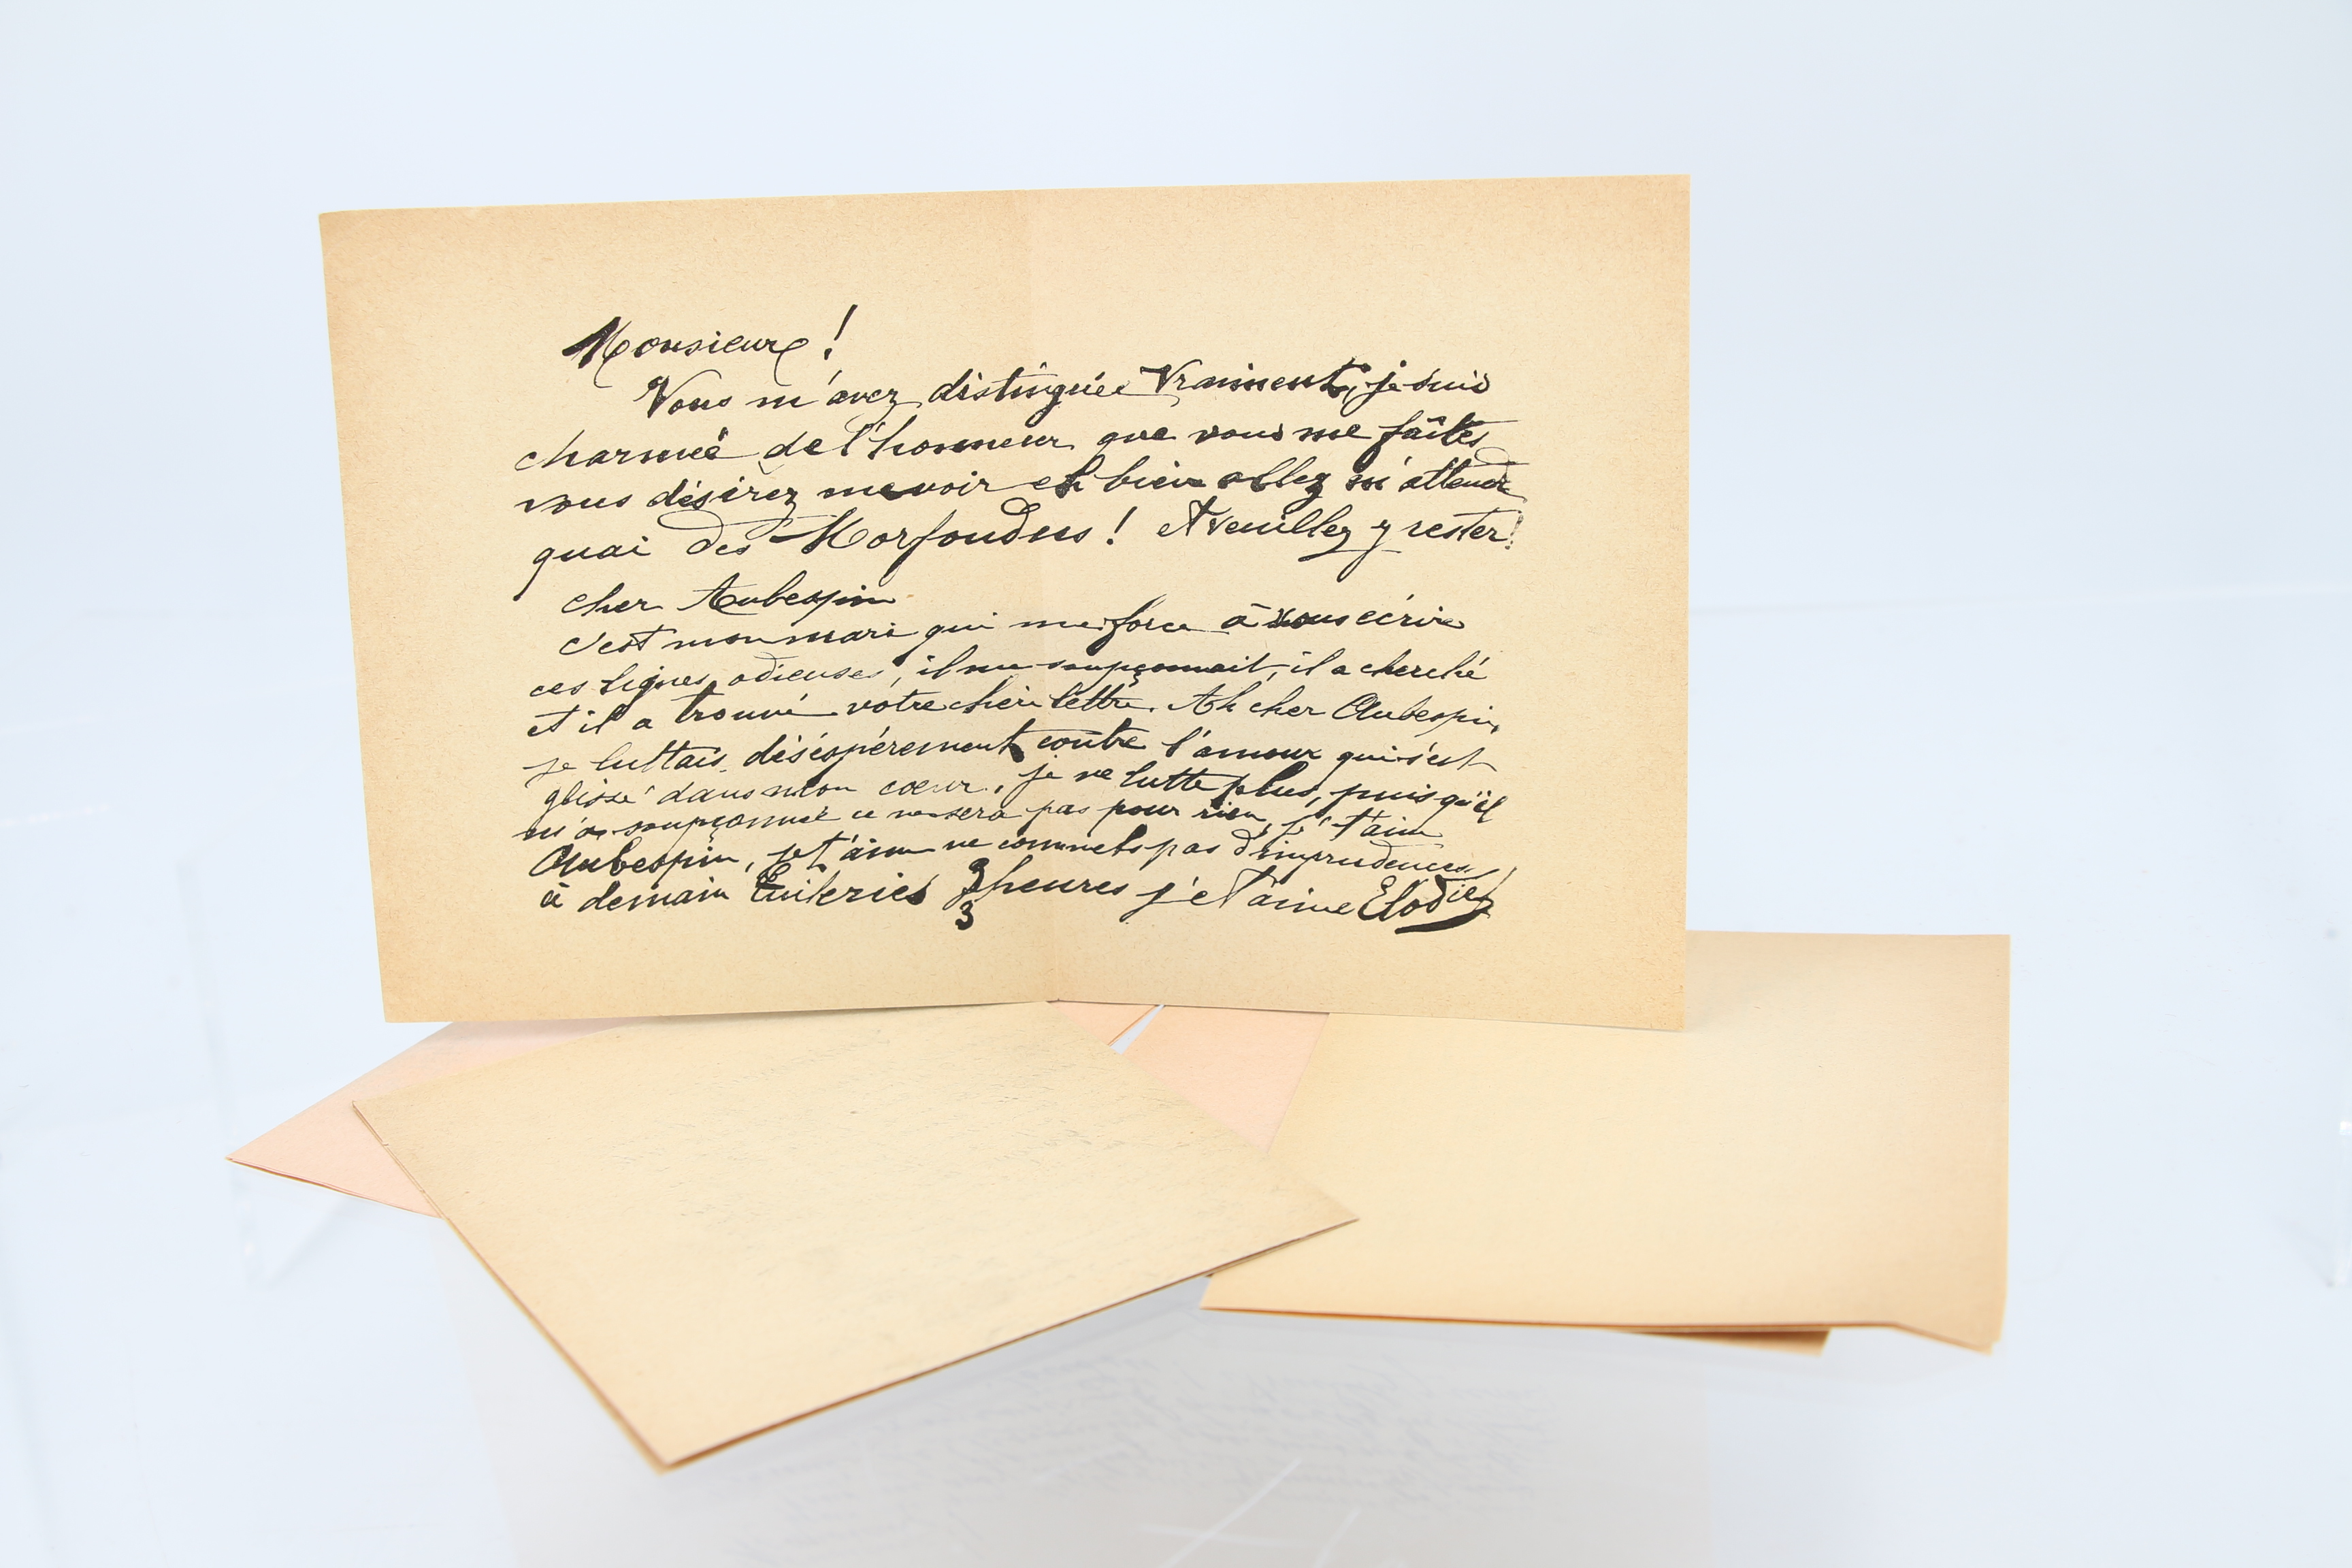 Monsieur !
Vous m'avez distinguée Vraiment, je suis
charmée de l'honneur que vous me faîtes
vous désirez me voir eh bien allez m'attendre
quai des Morfondus ! et veuillez y rester !
cher Aubespin
c'est mon mari qui me force à vous écrire
ces lignes odieuses, il me soupçonnait, il a cherché
et il a trouvé votre chère lettre. Ah cher Aubespin,
je luttais désespérement contre l'amour qui s'est
glissé dans mon cœur, je ne lutte plus, puisqu'il
m'a soupçonnée ce ne sera pas pour rien, je t'aime
Aubespin, je t'aime ne commets pas d'imprudences
à demain Tuileries 3 heures je t'aime Elodie
3